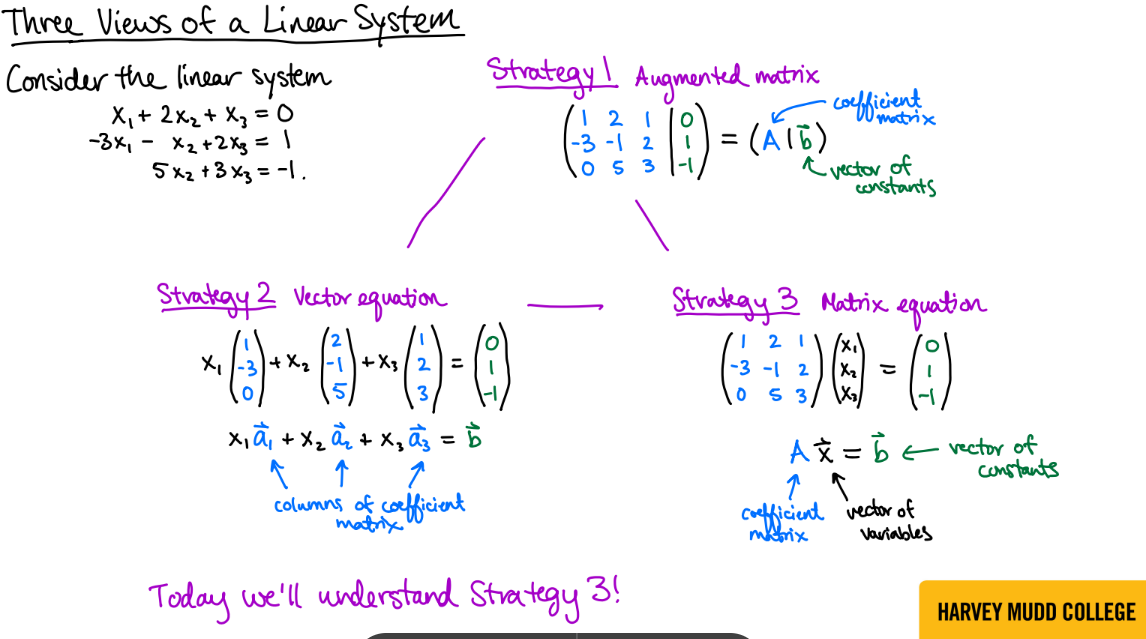 Three Views of a Linear System
Consider the linear system
x₁ + 2x₂ + x₃ = 0
-3x₁ - x₂ + 2x₃ = 1
5x₂ + 3x₃ = -1.
Strategy 1 Augmented matrix
( 1 2 1 | 0 )
( -3 -1 2 | 1 ) = (A | b⃗)
( 0 5 3 | -1 )
coefficient
matrix
vector of
constants
Strategy 2 Vector equation
x₁ ( 1 -3 0 ) + x₂ ( 2 -1 5 ) + x₃ ( 1 2 3 ) = ( 0 1 -1 )
x₁ a⃗₁ + x₂ a⃗₂ + x₃ a⃗₃ = b⃗
columns of coefficient
matrix
Strategy 3 Matrix equation
( 1 2 1 ) ( x₁ ) ( 0 )
( -3 -1 2 ) ( x₂ ) = ( 1 )
( 0 5 3 ) ( x₃ ) ( -1 )
A x⃗ = b⃗ ← vector of
constants
coefficient
matrix
vector of
variables
Today we'll understand Strategy 3!
HARVEY MUDD COLLEGE